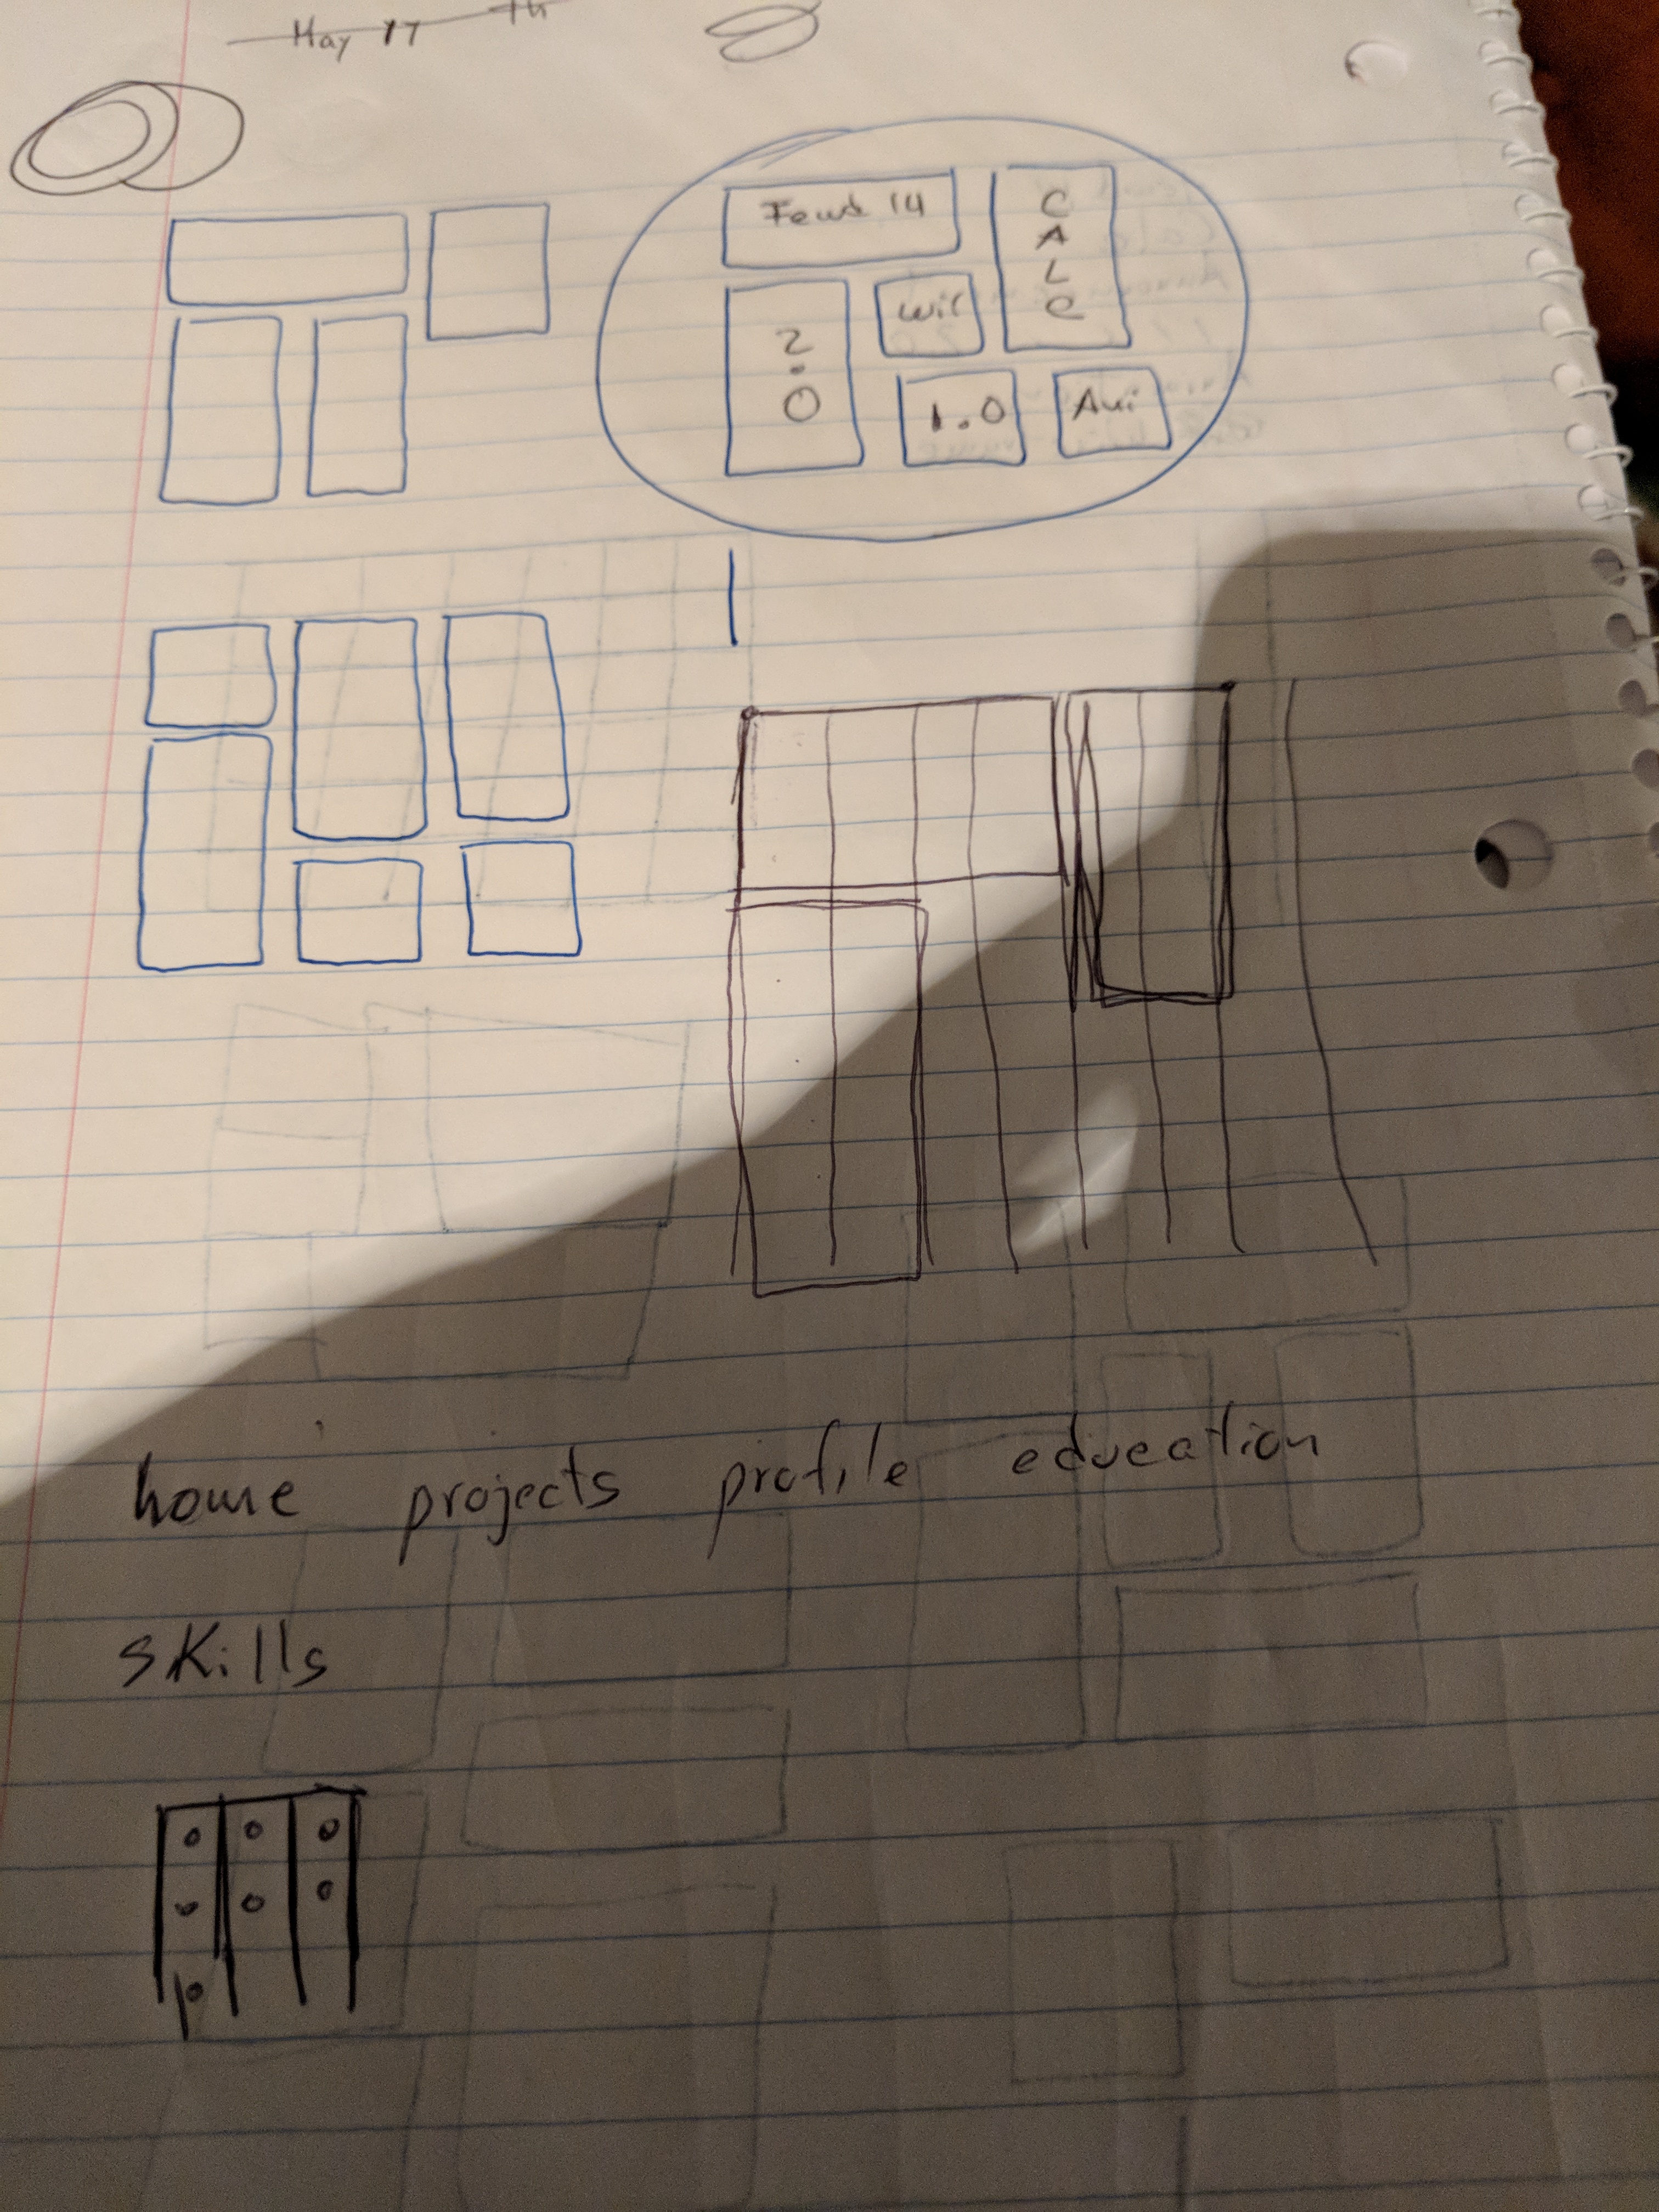 May 17 th
Feud 14
CALC
2.0
Wir
1.0
Avi
home projects profile education
skills